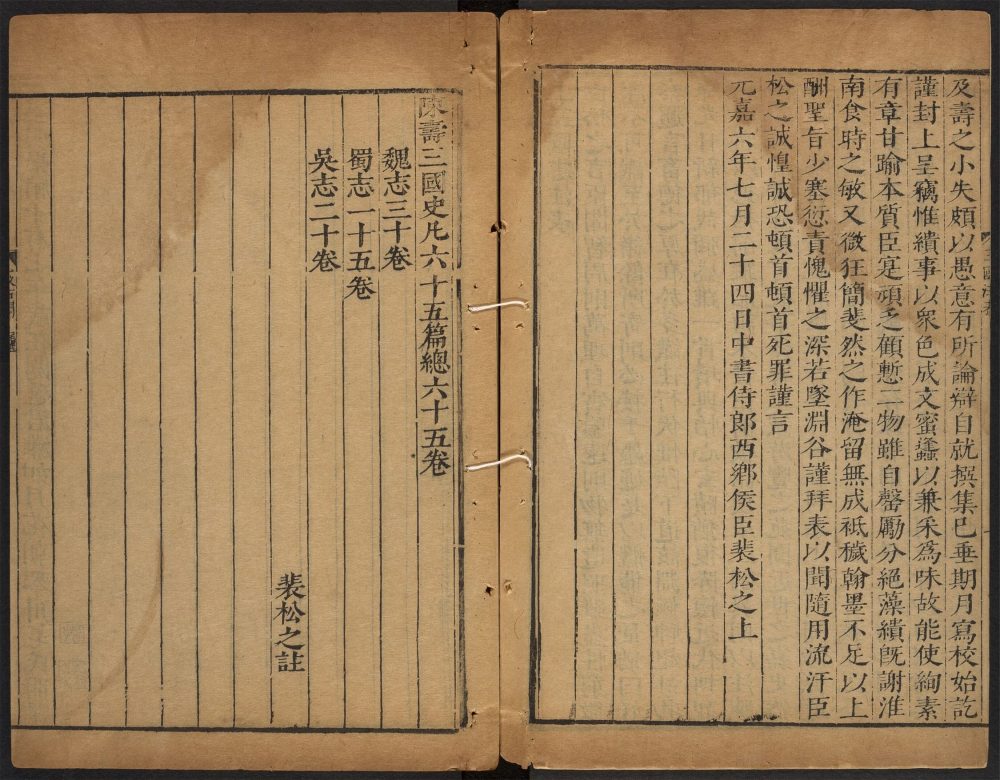 及壽之小失頗以愚意有所論辯自就撰集已垂期月寫校始訖
謹封上呈竊惟繢事以衆色成文蜜蠭以兼采爲味故能使絢素
有章甘踰本質臣寔頑乏顧慙二物雖自罄厲分絕藻繢旣謝淮
南食時之敏又微狂簡斐然之作淹留無成袛穢翰墨不足以上
酬聖旨少塞愆責愧懼之深若墜淵谷謹拜表以聞隨用流汗臣
松之誠惶誠恐頓首頓首死罪謹言
元嘉六年七月二十四日中書侍郎西鄉侯臣裴松之上
陳壽三國史凡六十五篇總六十五卷
魏志三十卷
蜀志一十五卷
吳志二十卷
裴松之註